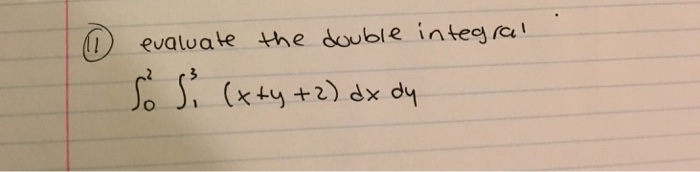 ⑪ evaluate the double integral
∫₀² ∫₁³ (x+y+2) dx dy